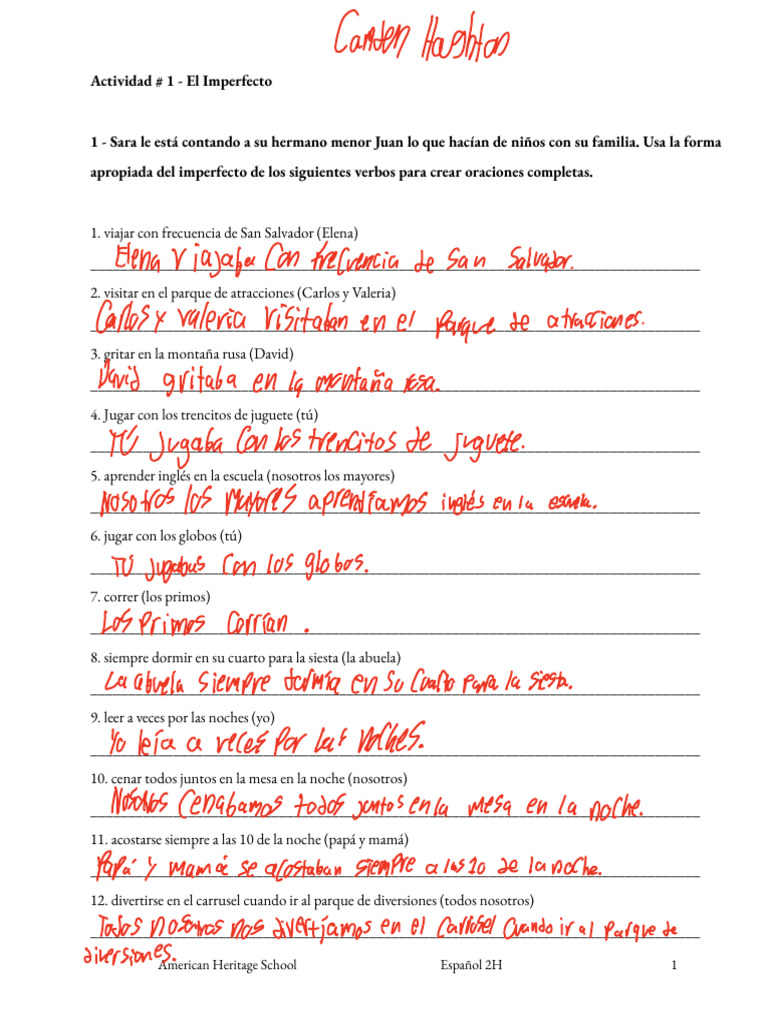 Camden Haughton
Actividad # 1 - El Imperfecto
1 - Sara le está contando a su hermano menor Juan lo que hacían de niños con su familia. Usa la forma
apropiada del imperfecto de los siguientes verbos para crear oraciones completas.
1. viajar con frecuencia de San Salvador (Elena)
Elena viajaba con frecuencia de San Salvador.
2. visitar en el parque de atracciones (Carlos y Valeria)
Carlos y Valeria visitaban en el parque de atracciones.
3. gritar en la montaña rusa (David)
David gritaba en la montaña rusa.
4. Jugar con los trencitos de juguete (tú)
TÚ jugaba con los trencitos de juguete.
5. aprender inglés en la escuela (nosotros los mayores)
Nosotros los mayores aprendíamos inglés en la escuela.
6. jugar con los globos (tú)
TÚ jugabas con los globos.
7. correr (los primos)
Los primos corrían.
8. siempre dormir en su cuarto para la siesta (la abuela)
La abuela siempre dormía en su cuarto para la siesta.
9. leer a veces por las noches (yo)
Yo leía a veces por las noches.
10. cenar todos juntos en la mesa en la noche (nosotros)
Nosotros cenabamos todos juntos en la mesa en la noche.
11. acostarse siempre a las 10 de la noche (papá y mamá)
Papá y mamá se acostaban siempre a las 10 de la noche.
12. divertirse en el carrusel cuando ir al parque de diversiones (todos nosotros)
Todos nosotros nos divertíamos en el carrusel cuando ir al parque de
diversiones.
American Heritage School Español 2H 1